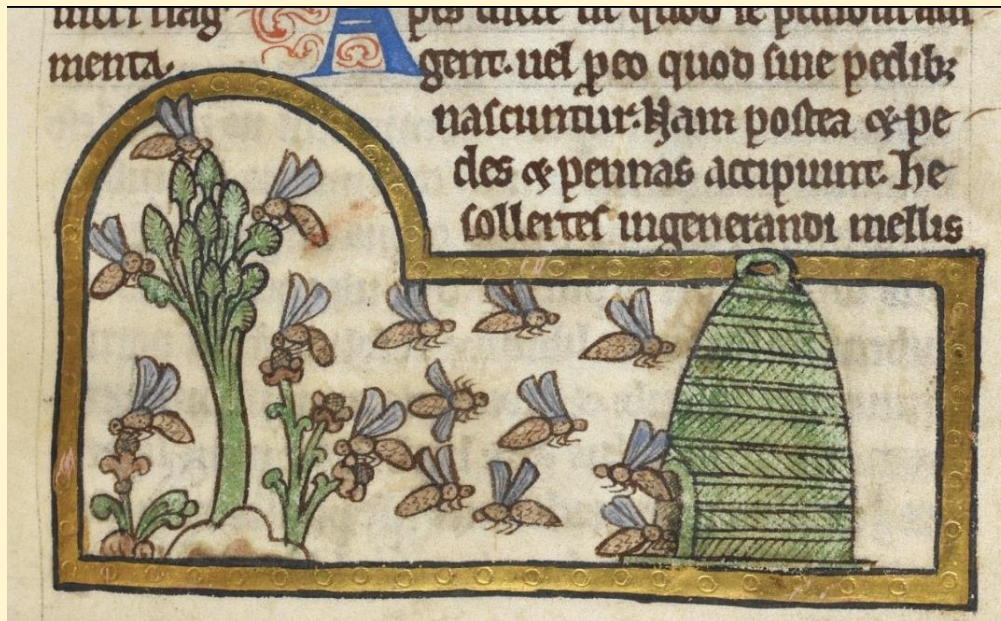 menta.
Apis dicte quod se
gent. uel ꝑ eo quod sine pedib;
nascuntur. Nam postea & pe
des & pennas accipiunt. he
sollertes ingenerandi mellis